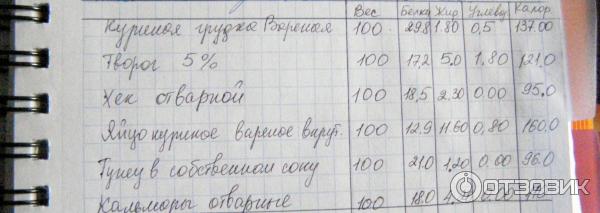 Вес Белки Жир Углевод. Калор.
Куриная грудка Вареная 100 29.8 1.80 0,5 137.00
Творог 5% 100 17.2 5.0 1.80 121.0
Хек отварной 100 18,5 2.30 0.00 95.0
Яйцо куриное вареное вкрут. 100 12.9 11.60 0,80 160.0
Тунец в собственном соку 100 21.0 1,20 0.00 96.0
Кальмары отварные 100 18.0
ОТЗОВИК